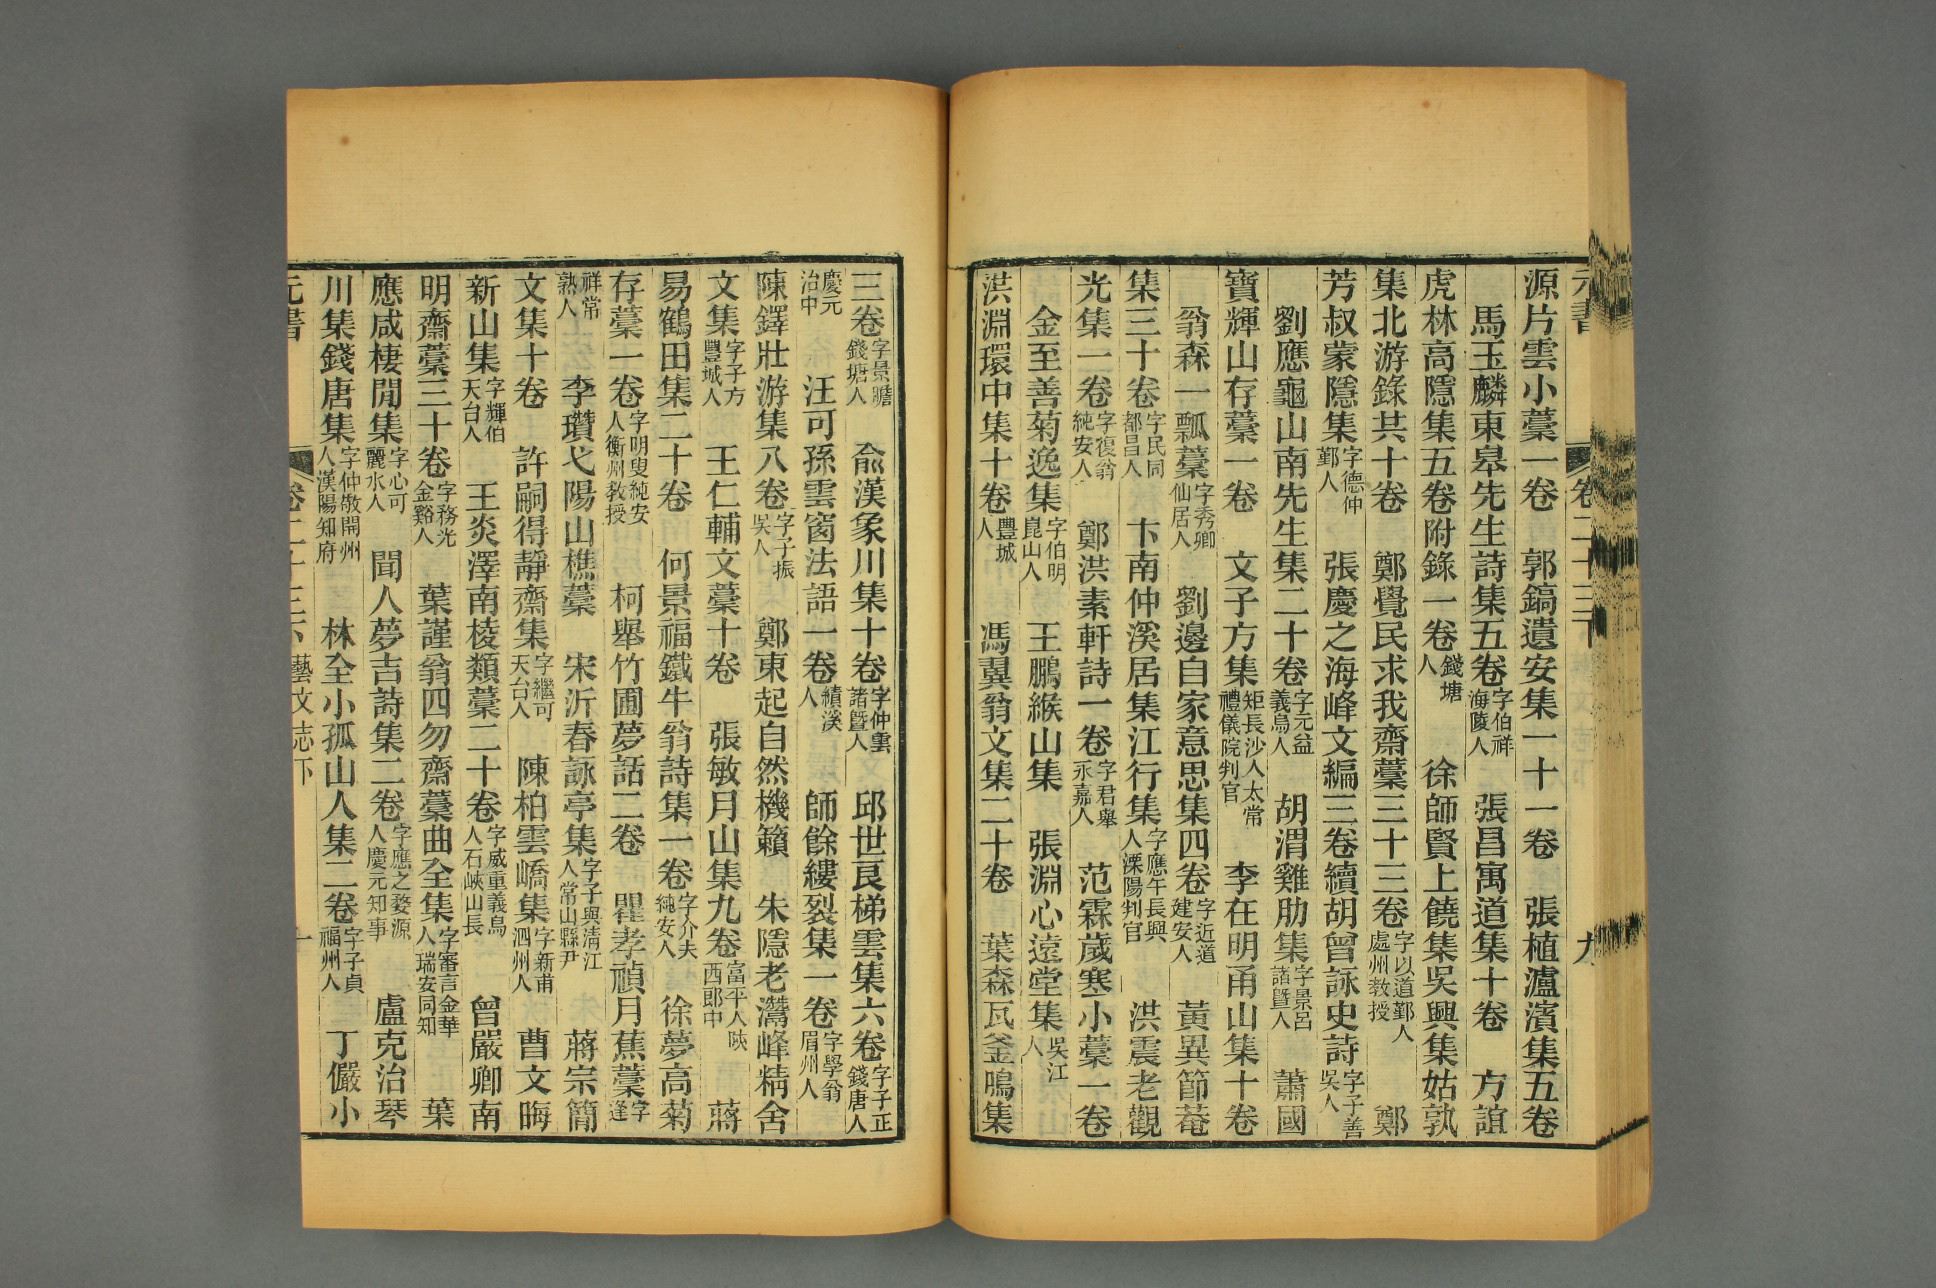 源片雲小藁一卷 郭鎬遺安集一十一卷 張植瀘濱集五卷
馬玉麟東皋先生詩集五卷字伯祥海陵人 張昌寓道集十卷 方誼
虎林高隱集五卷附錄一卷錢塘人 徐師賢上饒集吳興集姑孰
集北游錄共十卷 鄭覺民求我齋藁三十三卷字以道鄞人處州教授 鄭
芳叔蒙隱集字德仲鄞人 張慶之海峰文編三卷續胡曾詠史詩字子善吳人
劉應龜山南先生集二十卷字元益義烏人 胡渭雞肋集字景呂諸暨人 蕭國
寶輝山存藁一卷 文子方集矩長沙人太常禮儀院判官 李在明甬山集十卷
翁森一瓢藁字秀卿仙居人 劉邊自家意思集四卷字近道建安人 黃異節菴
集三十卷字民同都昌人 卞南仲溪居集江行集字應午長興人溧陽判官 洪震老觀
光集一卷字復翁純安人 鄭洪素軒詩一卷字君舉永嘉人 范霖歲寒小藁一卷
金至善菊逸集字伯明崑山人 王鵬緱山集 張淵心遠堂集吳江人
洪淵環中集十卷豐城人 馮翼翁文集二十卷 葉森瓦釜鳴集
元書 卷二十三下 九
三卷字景瞻錢塘人 俞漢象川集十卷字仲雲諸暨人 邱世良梯雲集六卷字子正錢唐人
慶元治中 汪可孫雲窗法語一卷績溪人 師餘縷裂集一卷字學翁眉州人
陳鐸壯游集八卷字子振吳人 鄭東起自然機籟 朱隱老灊峰精舍
文集字子方豐城人 王仁輔文藁十卷 張敏月山集九卷富平人陝西郎中 蔣
易鶴田集二十卷 何景福鐵牛翁詩集一卷字介夫純安人 徐夢高菊
存藁一卷字明叟純安人衡州教授 柯舉竹圃夢話二卷 瞿孝禎月蕉藁字逢
祥常熟人 李瓚弋陽山樵藁 宋沂春詠亭集字子與清江人常山縣尹 蔣宗簡
文集十卷 許嗣得靜齋集字繼可天台人 陳柏雲嶠集字新甫泗州人 曹文晦
新山集字輝伯天台人 王炎澤南稜類藁二十卷字威重義烏人石峽山長 曾嚴卿南
明齋藁三十卷字務光金谿人 葉謹翁四勿齋藁曲全集字審言金華人瑞安同知 葉
應咸棲閒集字心可麗水人 聞人夢吉詩集二卷字應之婺源人慶元知事 盧克治琴
川集錢唐集字仲敬開州人漢陽知府 林全小孤山人集二卷字子貞福州人 丁儼小
元書 卷二十三下 藝文志下 十